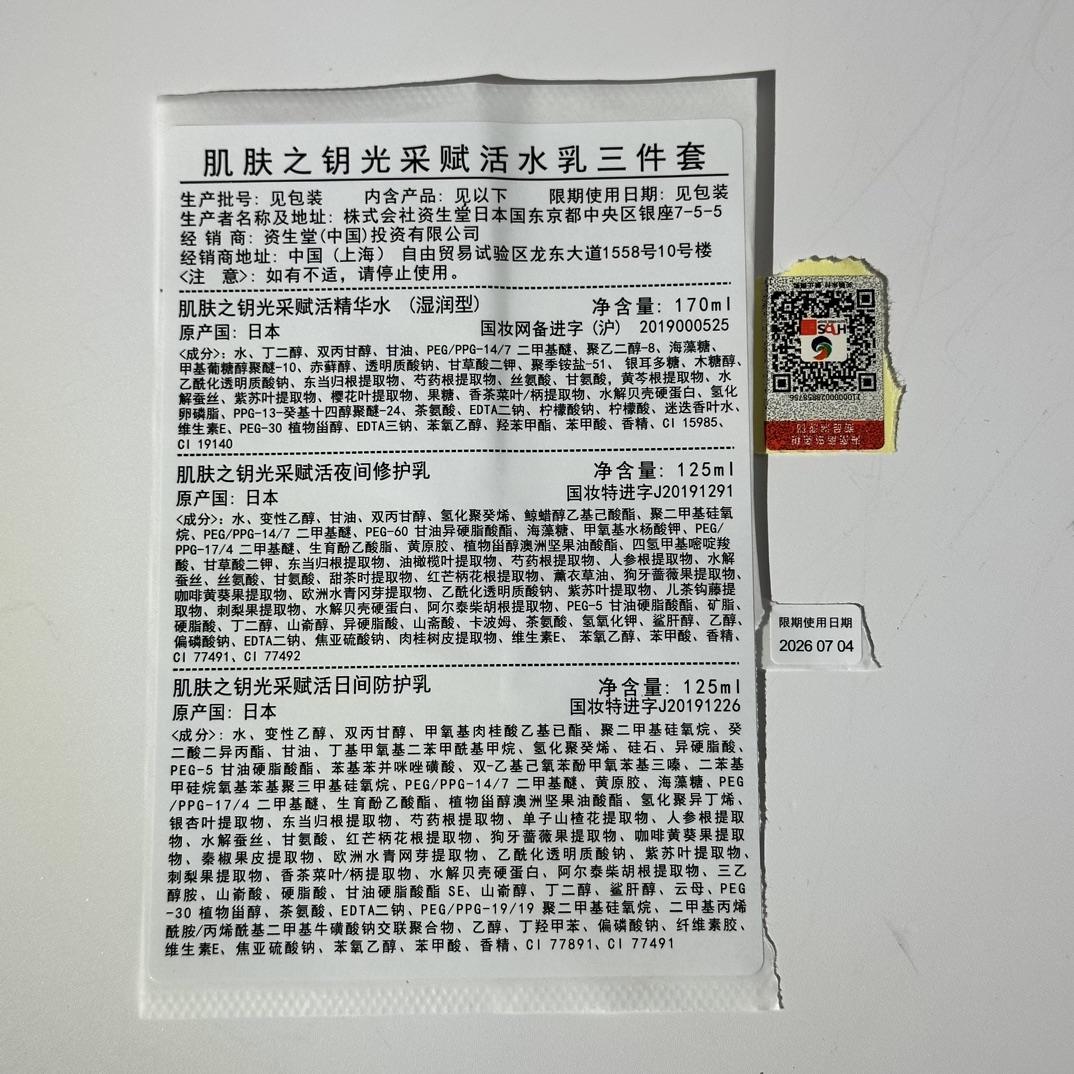 肌肤之钥光采赋活水乳三件套
生产批号: 见包装 内含产品: 见以下 限期使用日期: 见包装
生产者名称及地址: 株式会社资生堂日本国东京都中央区银座7-5-5
经 销 商: 资生堂(中国)投资有限公司
经销商地址: 中国 (上海) 自由贸易试验区龙东大道1558号10号楼
<注 意>: 如有不适,请停止使用。
肌肤之钥光采赋活精华水 (湿润型) 净含量: 170ml
原产国: 日本 国妆网备进字 (沪) 2019000525
<成分>: 水、丁二醇、双丙甘醇、甘油、PEG/PPG-14/7 二甲基醚、聚乙二醇-8、海藻糖、
甲基葡糖醇聚醚-10、赤藓醇、透明质酸钠、甘草酸二钾、聚季铵盐-51、 银耳多糖、木糖醇、
乙酰化透明质酸钠、东当归根提取物、芍药根提取物、丝氨酸、甘氨酸, 黄芩根提取物、水
解蚕丝、紫苏叶提取物、樱花叶提取物、果糖、香茶菜叶/柄提取物、水解贝壳硬蛋白、氢化
卵磷脂、PPG-13-癸基十四醇聚醚-24、茶氨酸、EDTA二钠、柠檬酸钠、柠檬酸、迷迭香叶水、
维生素E、PEG-30 植物甾醇、EDTA三钠、苯氧乙醇、羟苯甲酯、苯甲酸、香精、CI 15985、
CI 19140
肌肤之钥光采赋活夜间修护乳 净含量: 125ml
原产国: 日本 国妆特进字J20191291
<成分>: 水、变性乙醇、甘油、双丙甘醇、氢化聚癸烯、鲸蜡醇乙基己酸酯、聚二甲基硅氧
烷、PEG/PPG-14/7 二甲基醚、PEG-60 甘油异硬脂酸酯、海藻糖、甲氧基水杨酸钾、PEG/
PPG-17/4 二甲基醚、生育酚乙酸脂、黄原胶、植物甾醇澳洲坚果油酸酯、四氢甲基嘧啶羧
酸、甘草酸二钾、东当归根提取物、油橄榄叶提取物、芍药根提取物、人参根提取物、水解
蚕丝、丝氨酸、甘氨酸、甜茶时提取物、红芒柄花根提取物、薰衣草油、狗牙蔷薇果提取物、
咖啡黄葵果提取物、欧洲水青冈芽提取物、乙酰化透明质酸钠、紫苏叶提取物、儿茶钩藤提
取物、刺梨果提取物、水解贝壳硬蛋白、阿尔泰柴胡根提取物、PEG-5 甘油硬脂酸酯、矿脂、
硬脂酸、丁二醇、山嵛醇、异硬脂酸、山嵛酸、卡波姆、茶氨酸、氢氧化钾、鲨肝醇、乙醇、
偏磷酸钠、EDTA二钠、焦亚硫酸钠、肉桂树皮提取物、维生素E、 苯氧乙醇、苯甲酸、香精、
CI 77491、CI 77492
肌肤之钥光采赋活日间防护乳 净含量: 125ml
原产国: 日本 国妆特进字J20191226
<成分>: 水、变性乙醇、双丙甘醇、甲氧基肉桂酸乙基已酯、聚二甲基硅氧烷、癸
二酸二异丙酯、甘油、丁基甲氧基二苯甲酰基甲烷、氢化聚癸烯、硅石、异硬脂酸、
PEG-5 甘油硬脂酸酯、苯基苯并咪唑磺酸、双-乙基己氧苯酚甲氧苯基三嗪、二苯基
甲硅烷氧基苯基聚三甲基硅氧烷、PEG/PPG-14/7 二甲基醚、黄原胶、海藻糖、PEG
/PPG-17/4 二甲基醚、生育酚乙酸酯、植物甾醇澳洲坚果油酸酯、氢化聚异丁烯、
银杏叶提取物、东当归根提取物、芍药根提取物、单子山楂花提取物、人参根提取
物、水解蚕丝、甘氨酸、红芒柄花根提取物、狗牙蔷薇果提取物、咖啡黄葵果提取
物、秦椒果皮提取物、欧洲水青网芽提取物、乙酰化透明质酸钠、紫苏叶提取物、
刺梨果提取物、香茶菜叶/柄提取物、水解贝壳硬蛋白、阿尔泰柴胡根提取物、三乙
醇胺、山嵛酸、硬脂酸、甘油硬脂酸酯 SE、山嵛醇、丁二醇、鲨肝醇、云母、PEG
-30 植物甾醇、茶氨酸、EDTA二钠、PEG/PPG-19/19 聚二甲基硅氧烷、二甲基丙烯
酰胺/丙烯酰基二甲基牛磺酸钠交联聚合物、乙醇、丁羟甲苯、偏磷酸钠、纤维素胶、
维生素E、焦亚硫酸钠、苯氧乙醇、苯甲酸、香精、CI 77891、CI 77491
限期使用日期
2026 07 04